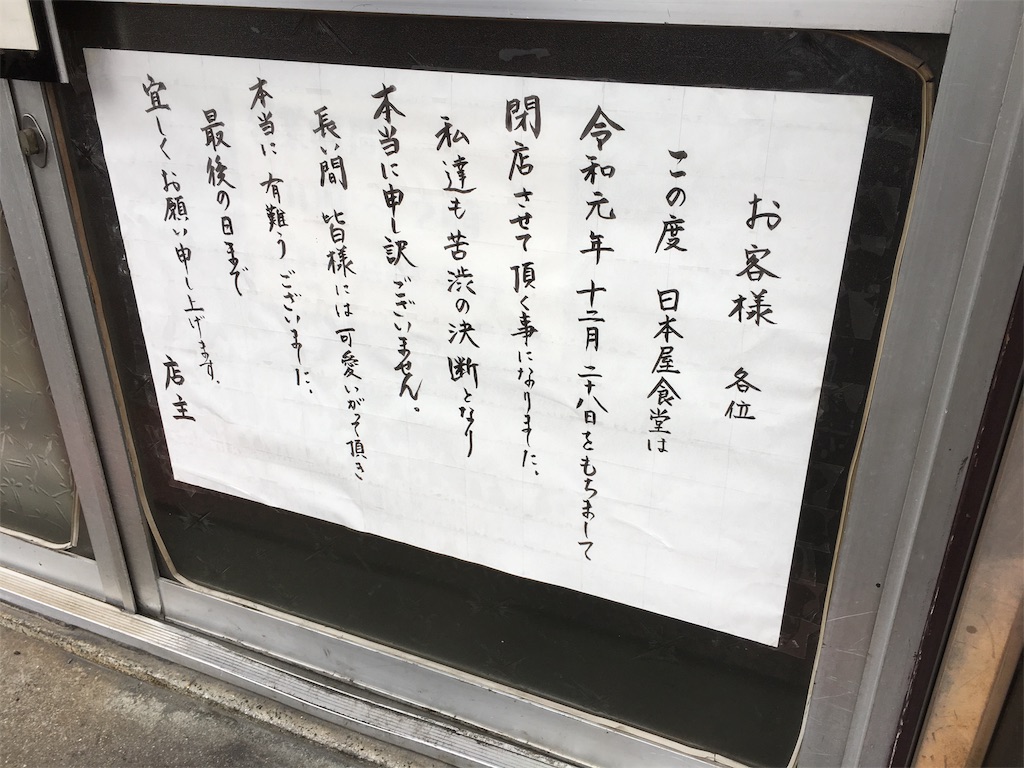 お客様 各位
この度 日本屋食堂は
令和元年 十二月 二十八日をもちまして
閉店させて頂く事になりました、
私達も苦渋の決断となり
本当に申し訳ございません。
長い間 皆様には可愛いがって頂き
本当に有難うございました、
最後の日まで
宜しくお願い申し上げます。
店主